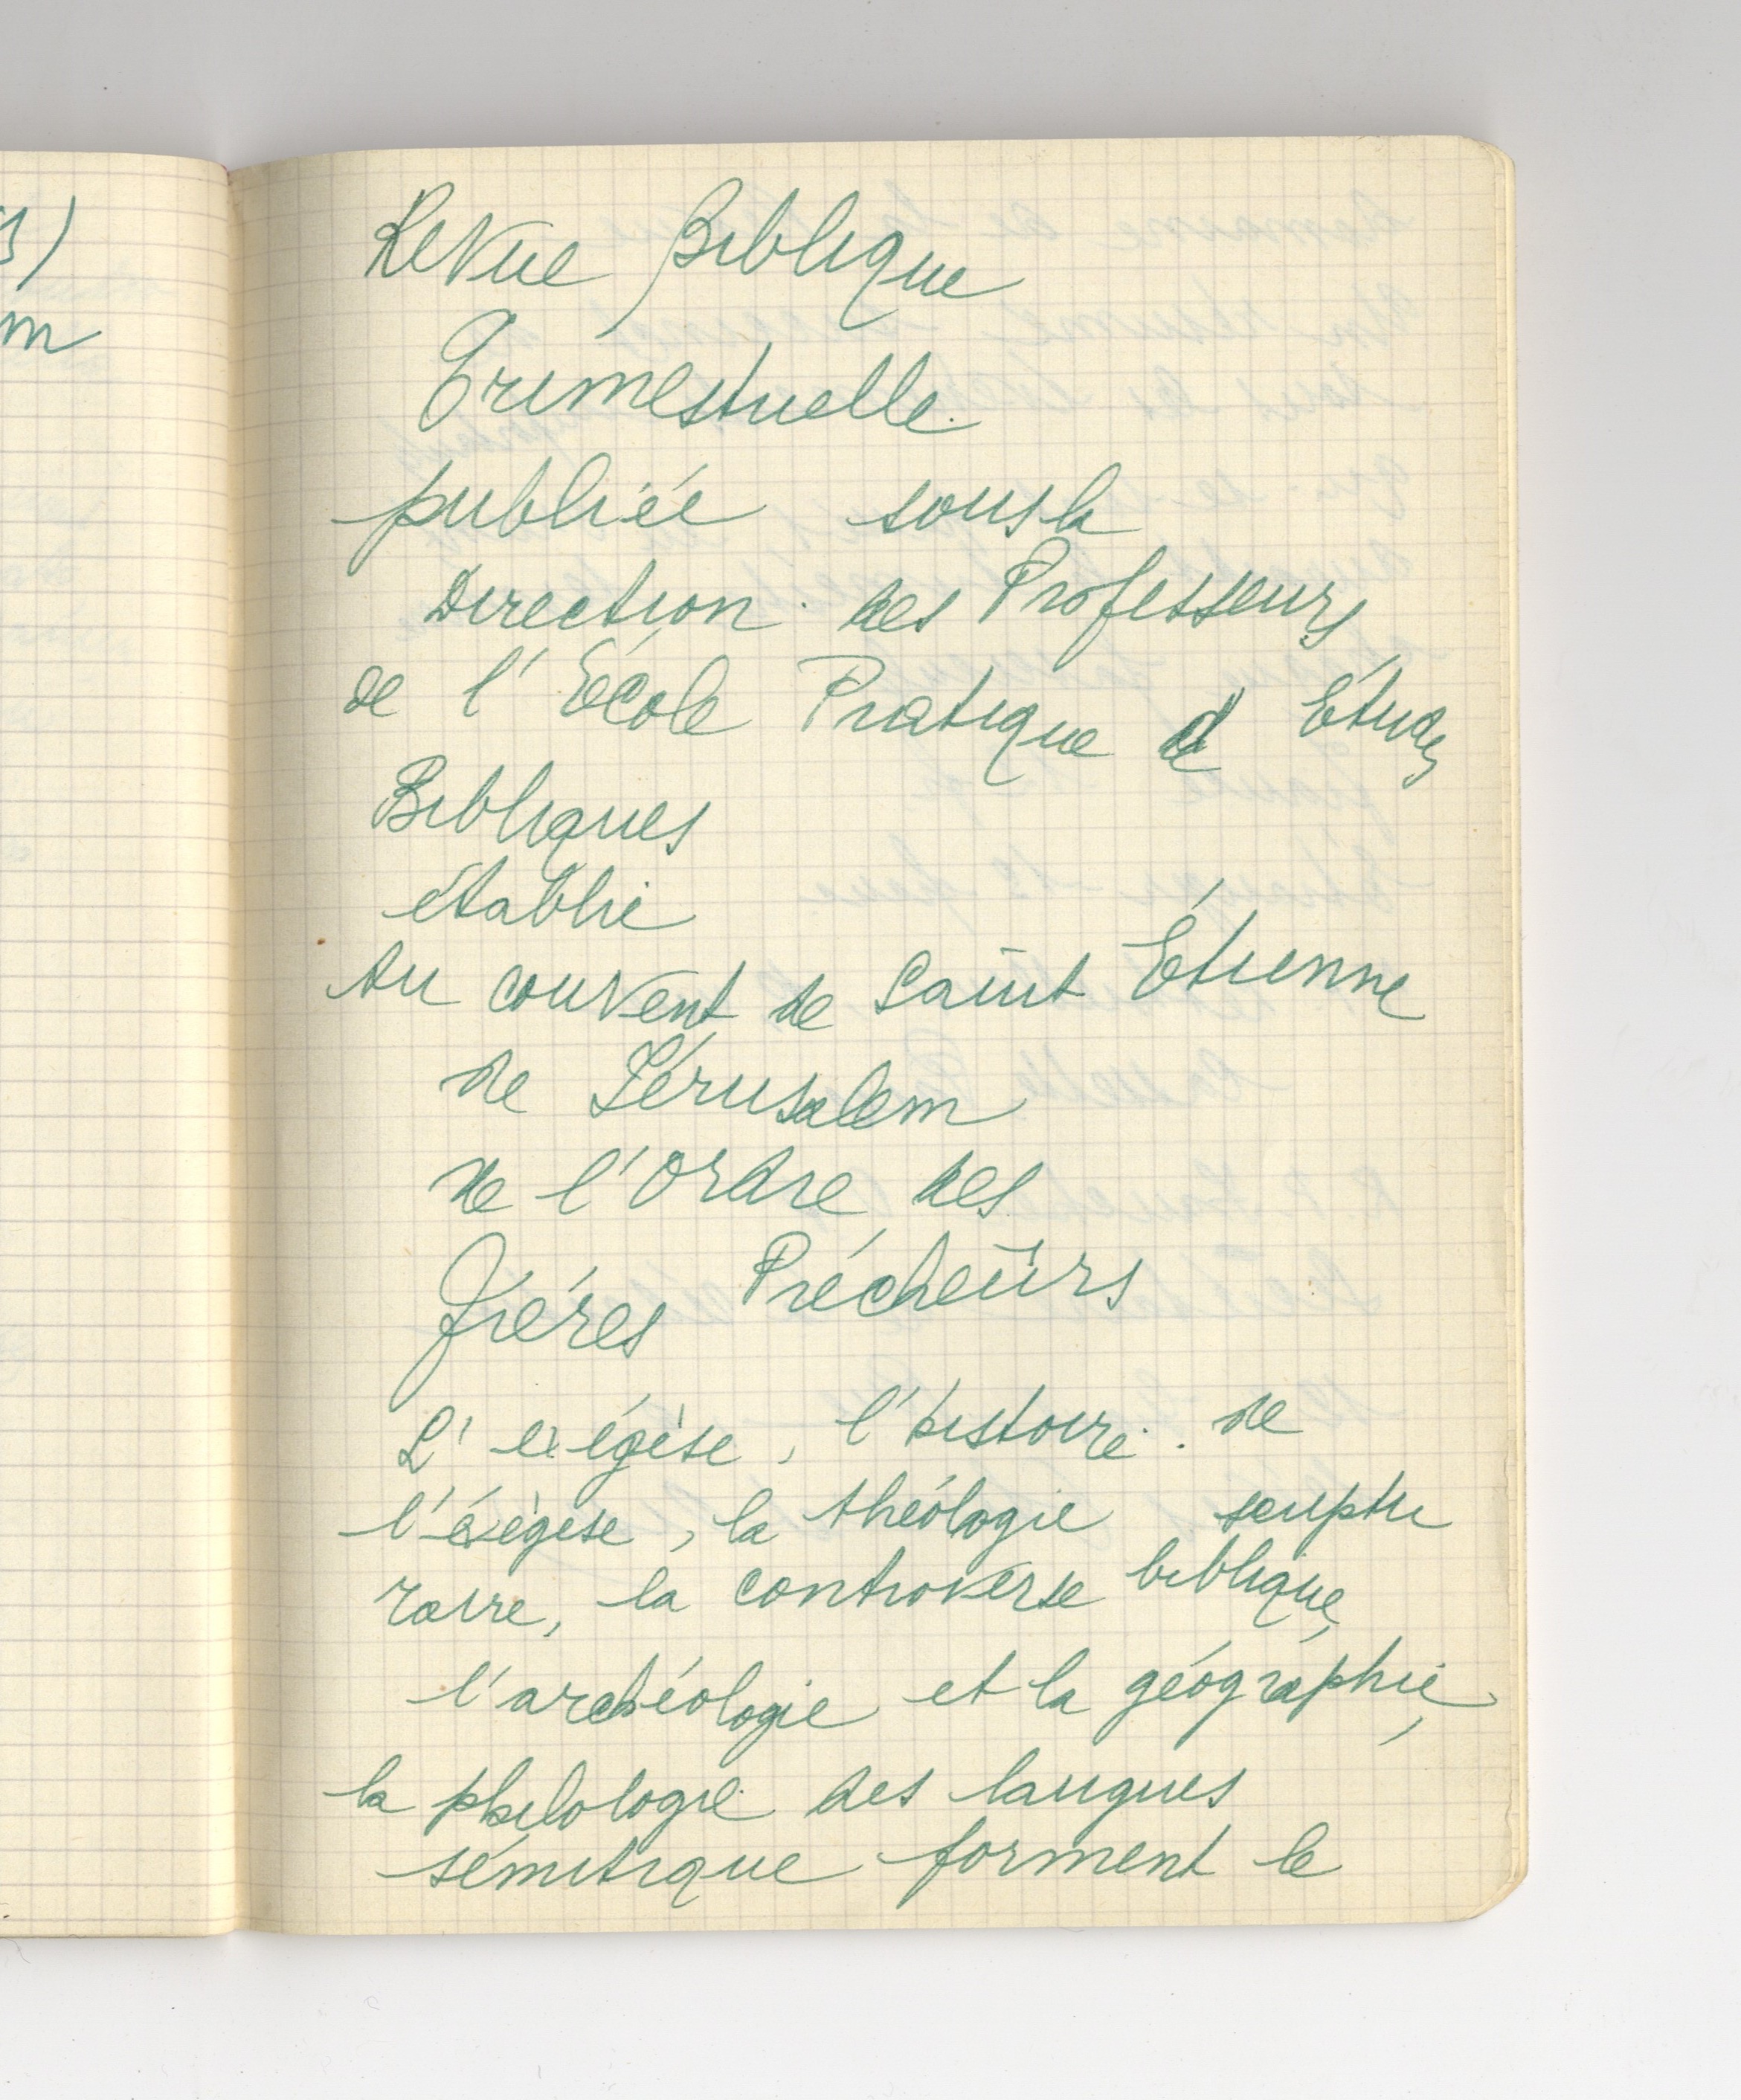 Revue Biblique
Trimestrielle
publiée sous la
Direction des Professeurs
de l'École Pratique d Études
Bibliques
établie
Au couvent de Saint Étienne
de Jérusalem
de l'Ordre des
Fréres Précheurs
L'exégèse, l'histoire. de
l'éxègese, la théologie scriptu
raire, la controverse biblique,
l'archéologie et la géographie,
la philologie des langues
sémitique forment le